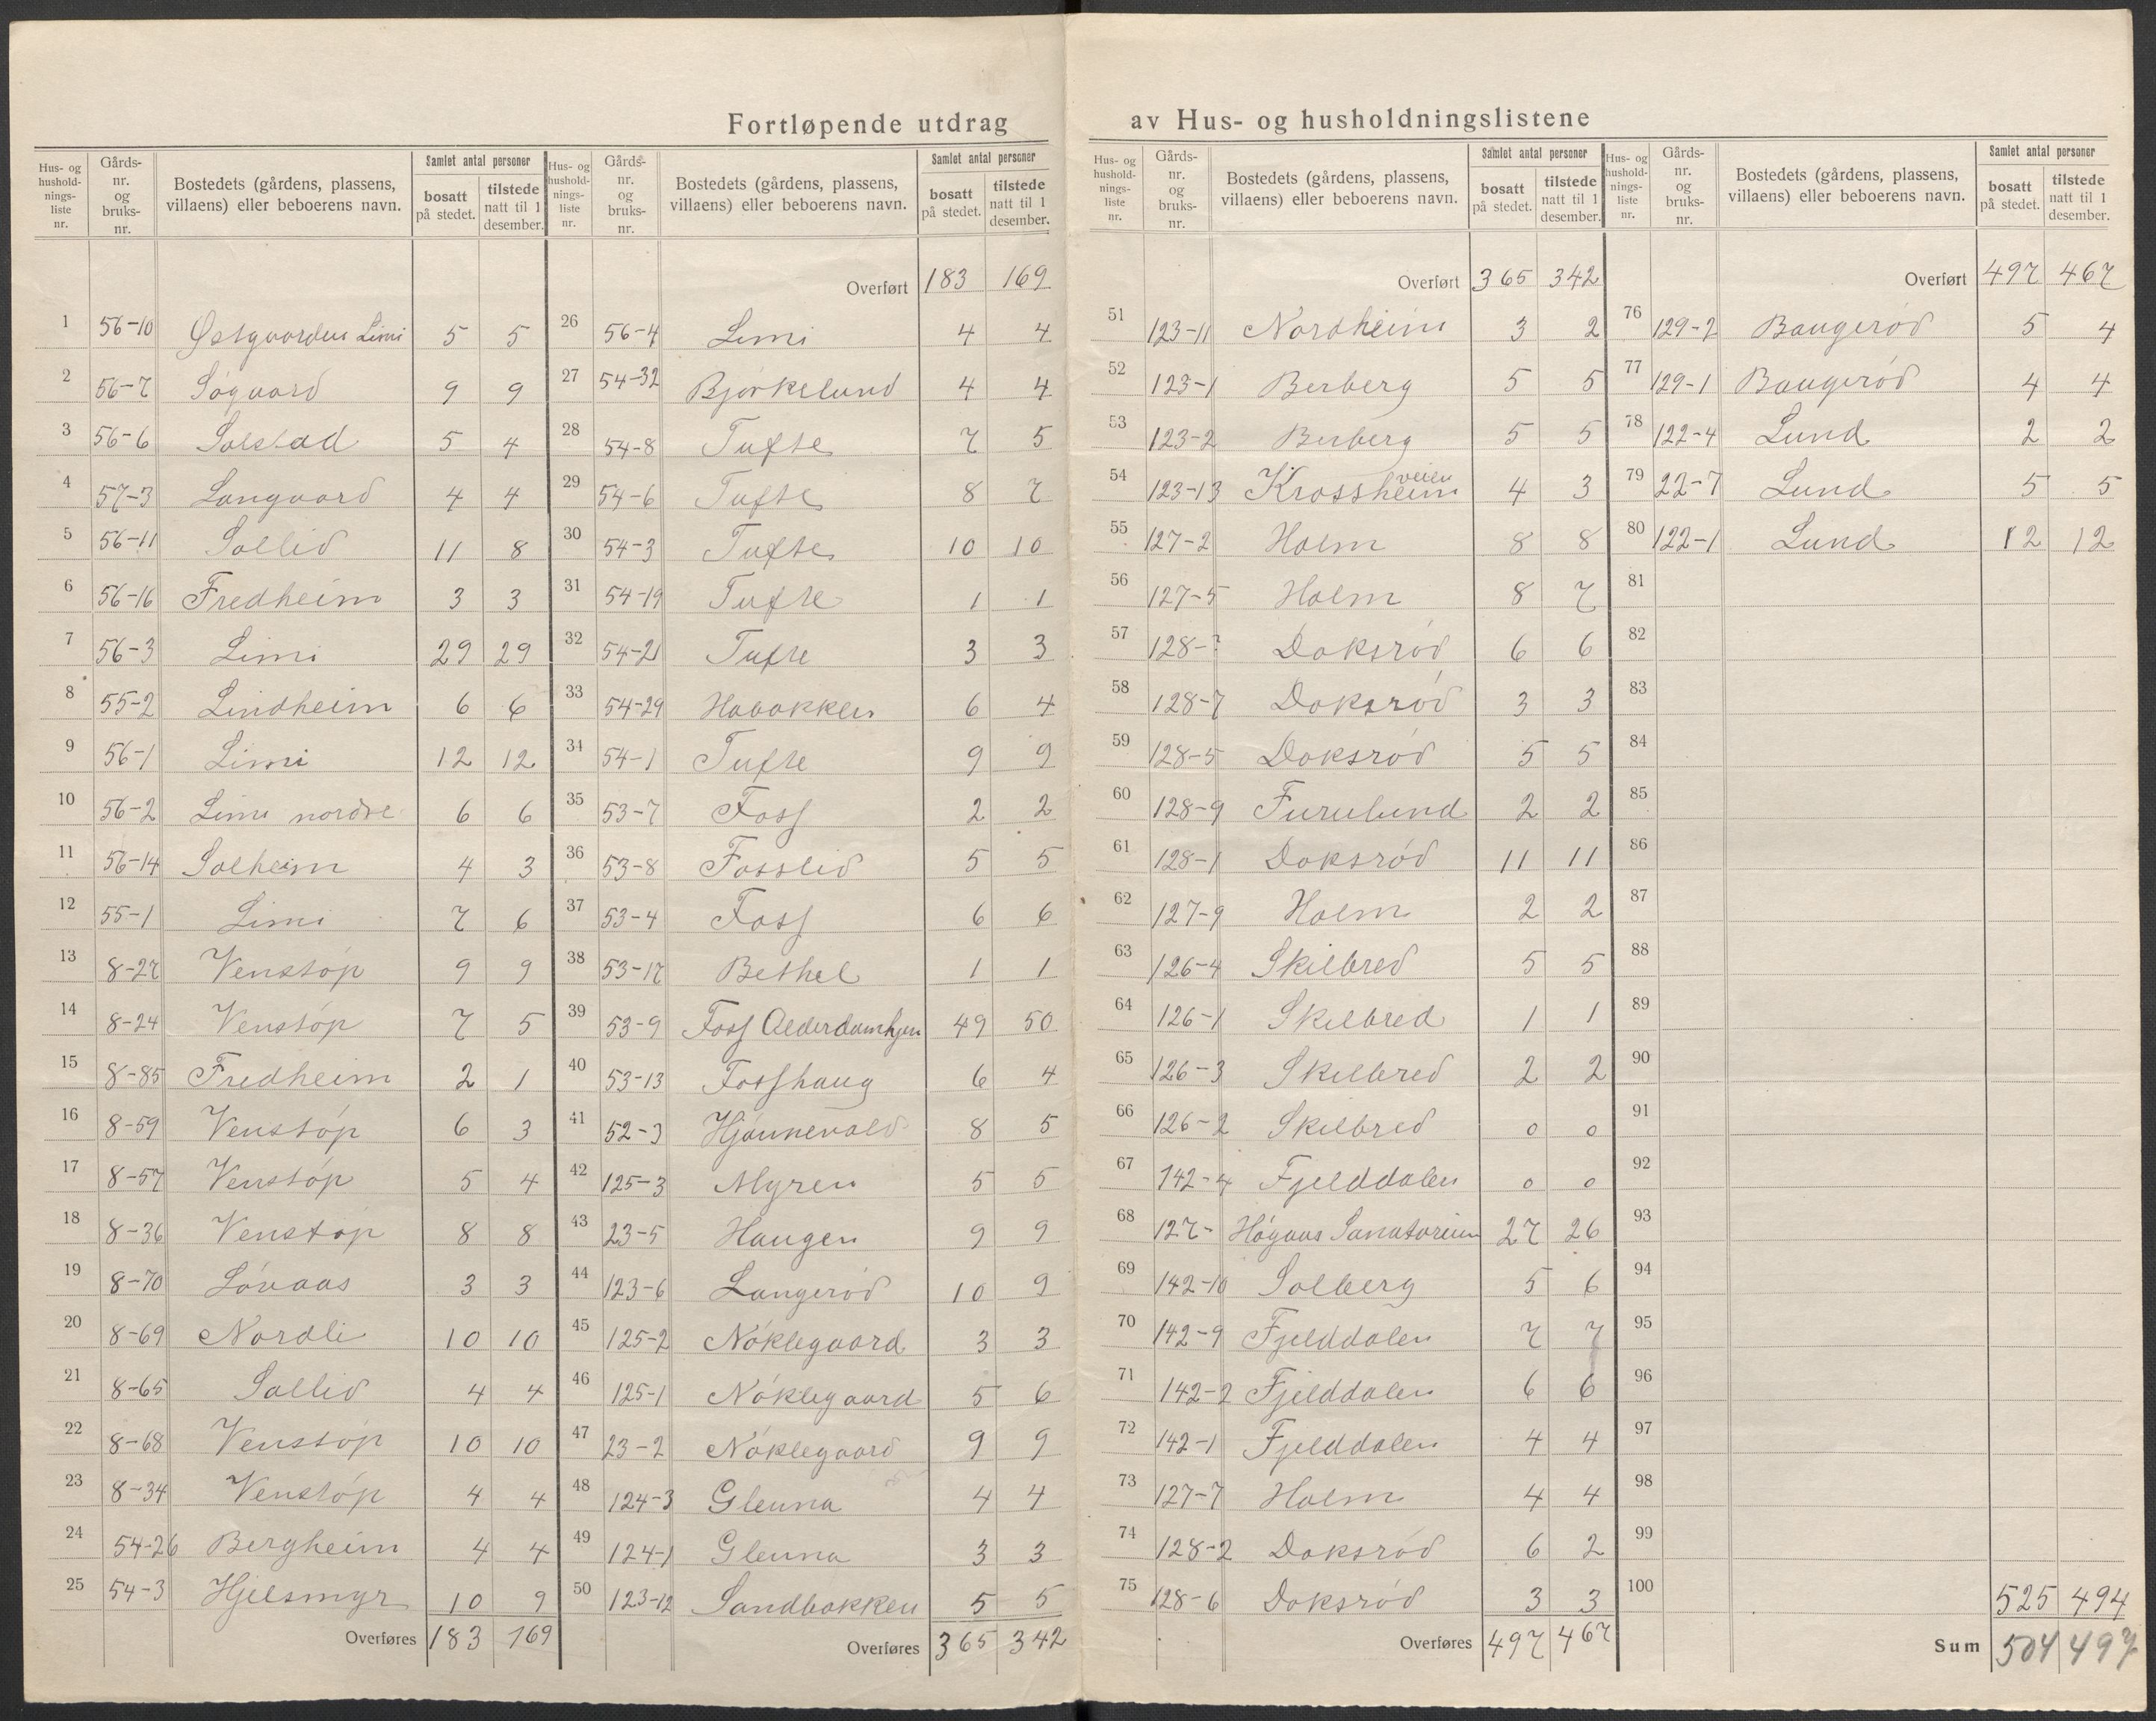 Fortløpende utdrag av Hus- og husholdningslistene
Hus- og husholdnings-liste nr. | Gårds-nr. og bruks-nr. | Bostedets (gårdens, plassens, villaens) eller beboerens navn. | Samlet antal personer | bosatt på stedet. | tilstede natt til 1 desember.
1 56-10 Østgaarden Limi 5 5
2 56-7 Søgaard 9 9
3 56-6 Solstad 5 4
4 57-3 Langaard 4 4
5 56-11 Sollid 11 8
6 56-16 Fredheim 3 3
7 56-3 Limi 29 29
8 55-2 Lindheim 6 6
9 56-1 Limi 12 12
10 56-2 Limi nordre 6 6
11 56-14 Solheim 4 3
12 55-1 Limi 7 6
13 8-27 Venstøp 9 9
14 8-24 Venstøp 7 5
15 8-85 Fredheim 2 1
16 8-59 Venstøp 6 3
17 8-57 Venstøp 5 4
18 8-36 Venstøp 8 8
19 8-70 Løvaas 3 3
20 8-69 Nordli 10 10
21 8-65 Sollid 4 4
22 8-68 Venstøp 10 10
23 8-34 Venstøp 4 4
24 54-26 Bergheim 4 4
25 54-3 Hjelsmyr 10 9
Overføres 183 169
Hus- og husholdnings-liste nr. | Gårds-nr. og bruks-nr. | Bostedets (gårdens, plassens, villaens) eller beboerens navn. | Samlet antal personer | bosatt på stedet. | tilstede natt til 1 desember.
Overført 183 169
26 56-4 Limi 4 4
27 54-32 Bjørkelund 4 4
28 54-8 Tufte 7 5
29 54-6 Tufte 8 7
30 54-3 Tufte 10 10
31 54-19 Tufte 1 1
32 54-21 Tufte 3 3
33 54-29 Haaakken 6 4
34 54-1 Tufte 9 9
35 53-7 Foss 2 2
36 53-8 Fosslid 5 5
37 53-4 Foss 6 6
38 53-17 Bethel 1 1
39 53-9 Foss Alderdomhjem 49 50
40 53-13 Fosshaug 6 4
41 52-3 Hjønnevald 8 5
42 125-3 Myren 5 5
43 23-5 Haugen 9 9
44 123-6 Langerød 10 9
45 125-2 Nøklegaard 3 3
46 125-1 Nøklegaard 5 6
47 23-2 Nøklegaard 9 9
48 124-3 Glenna 4 4
49 124-1 Glenna 3 3
50 123-12 Sandbakken 5 5
Overføres 365 342
Hus- og husholdnings-liste nr. | Gårds-nr. og bruks-nr. | Bostedets (gårdens, plassens, villaens) eller beboerens navn. | Samlet antal personer | bosatt på stedet. | tilstede natt til 1 desember.
Overført 365 342
51 123-11 Nordheim 3 2
52 123-1 Berberg 5 5
53 123-2 Berberg 5 5
54 123-13 Krossheim veien 4 3
55 127-2 Holm 8 8
56 127-5 Holm 8 7
57 128-? Doksrød 6 6
58 128-7 Doksrød 3 3
59 128-5 Doksrød 5 5
60 128-9 Furulund 2 2
61 128-1 Doksrød 11 11
62 127-9 Holm 2 2
63 126-4 Skilbred 5 5
64 126-1 Skilbred 1 1
65 126-3 Skilbred 2 2
66 126-2 Skilbred 0 0
67 142-4 Fjelddalen 0 0
68 127- Høgaas Sanatorium 27 26
69 142-10 Solberg 5 6
70 142-9 Fjelddalen 7 7
71 142-2 Fjelddalen 6 6
72 142-1 Fjelddalen 4 4
73 127-7 Holm 4 4
74 128-2 Doksrød 6 2
75 128-6 Doksrød 3 3
Overføres 497 467
Hus- og husholdnings-liste nr. | Gårds-nr. og bruks-nr. | Bostedets (gårdens, plassens, villaens) eller beboerens navn. | Samlet antal personer | bosatt på stedet. | tilstede natt til 1 desember.
Overført 497 467
76 129-2 Baugerød 5 4
77 129-1 Baugerød 4 4
78 122-4 Lund 2 2
79 22-7 Lund 5 5
80 122-1 Lund 12 12
81
82
83
84
85
86
87
88
89
90
91
92
93
94
95
96
97
98
99
100
525 494
Sum 504 497